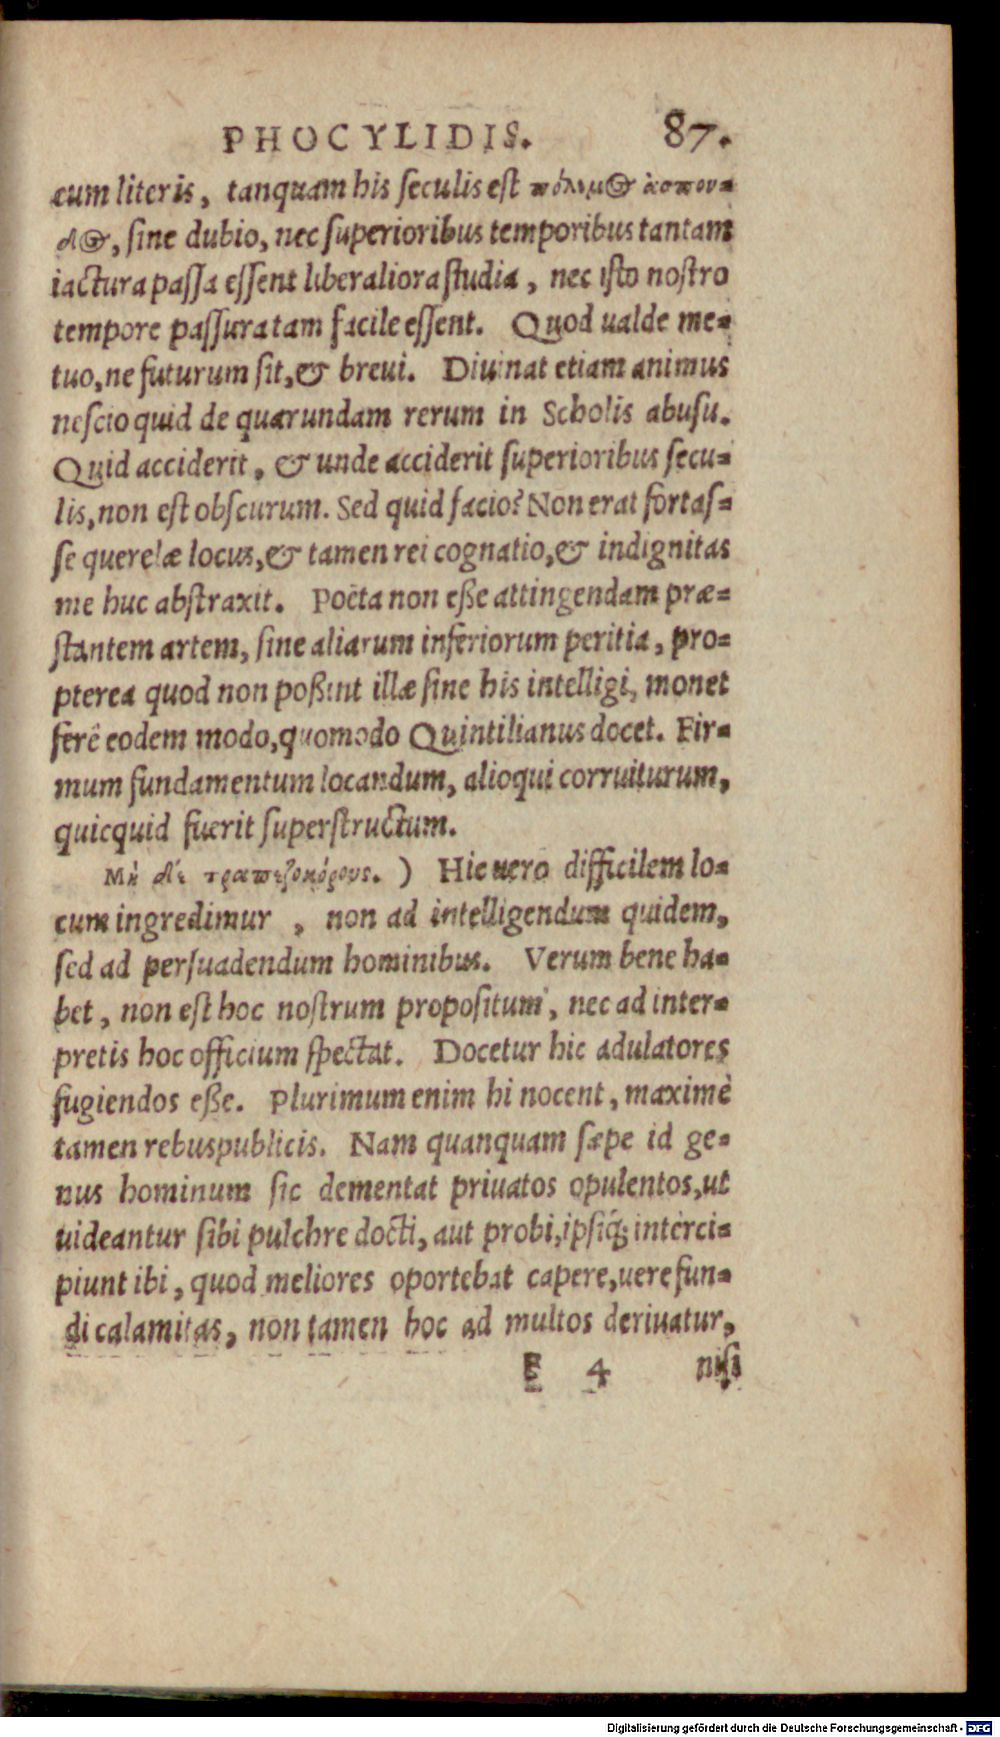 PHOCYLIDIS. 87.
cum literis, tanquam his seculis est πόλεμος ἄσπον-
δος, sine dubio, nec superioribus temporibus tantam
iactura passa essent liberaliora studia, nec isto nostro
tempore passura tam facile essent. Quod ualde me-
tuo, ne futurum sit, & breui. Diuinat etiam animus
nescio quid de quarundam rerum in Scholis abusu.
Quid acciderit, & unde acciderit superioribus secu-
lis, non est obscurum. Sed quid facio? Non erat fortas-
se querelæ locus, & tamen rei cognatio, & indignitas
me huc abstraxit. Poëta non eße attingendam præ-
stantem artem, sine aliarum inferiorum peritia, pro-
pterea quod non poßint illæ sine his intelligi, monet
ferè eodem modo, quomodo Quintilianus docet. Fir-
mum fundamentum locandum, alioqui corruiturum,
quicquid fuerit superstructum.
Μὴ δὲ τραπεζοκόρους. ) Hic uero difficilem lo-
cum ingredimur , non ad intelligendum quidem,
sed ad persuadendum hominibus. Verum bene ha-
bet, non est hoc nostrum propositum, nec ad inter-
pretis hoc officium spectat. Docetur hic adulatores
fugiendos eße. Plurimum enim hi nocent, maximè
tamen rebuspublicis. Nam quanquam sæpe id ge-
nus hominum sic dementat priuatos opulentos, ut
uideantur sibi pulchre docti, aut probi, ipsiq; interci-
piunt ibi, quod meliores oportebat capere, uere fun-
di calamitas, non tamen hoc ad multos deriuatur,
E 4 nisi
Digitalisierung gefördert durch die Deutsche Forschungsgemeinschaft - DFG